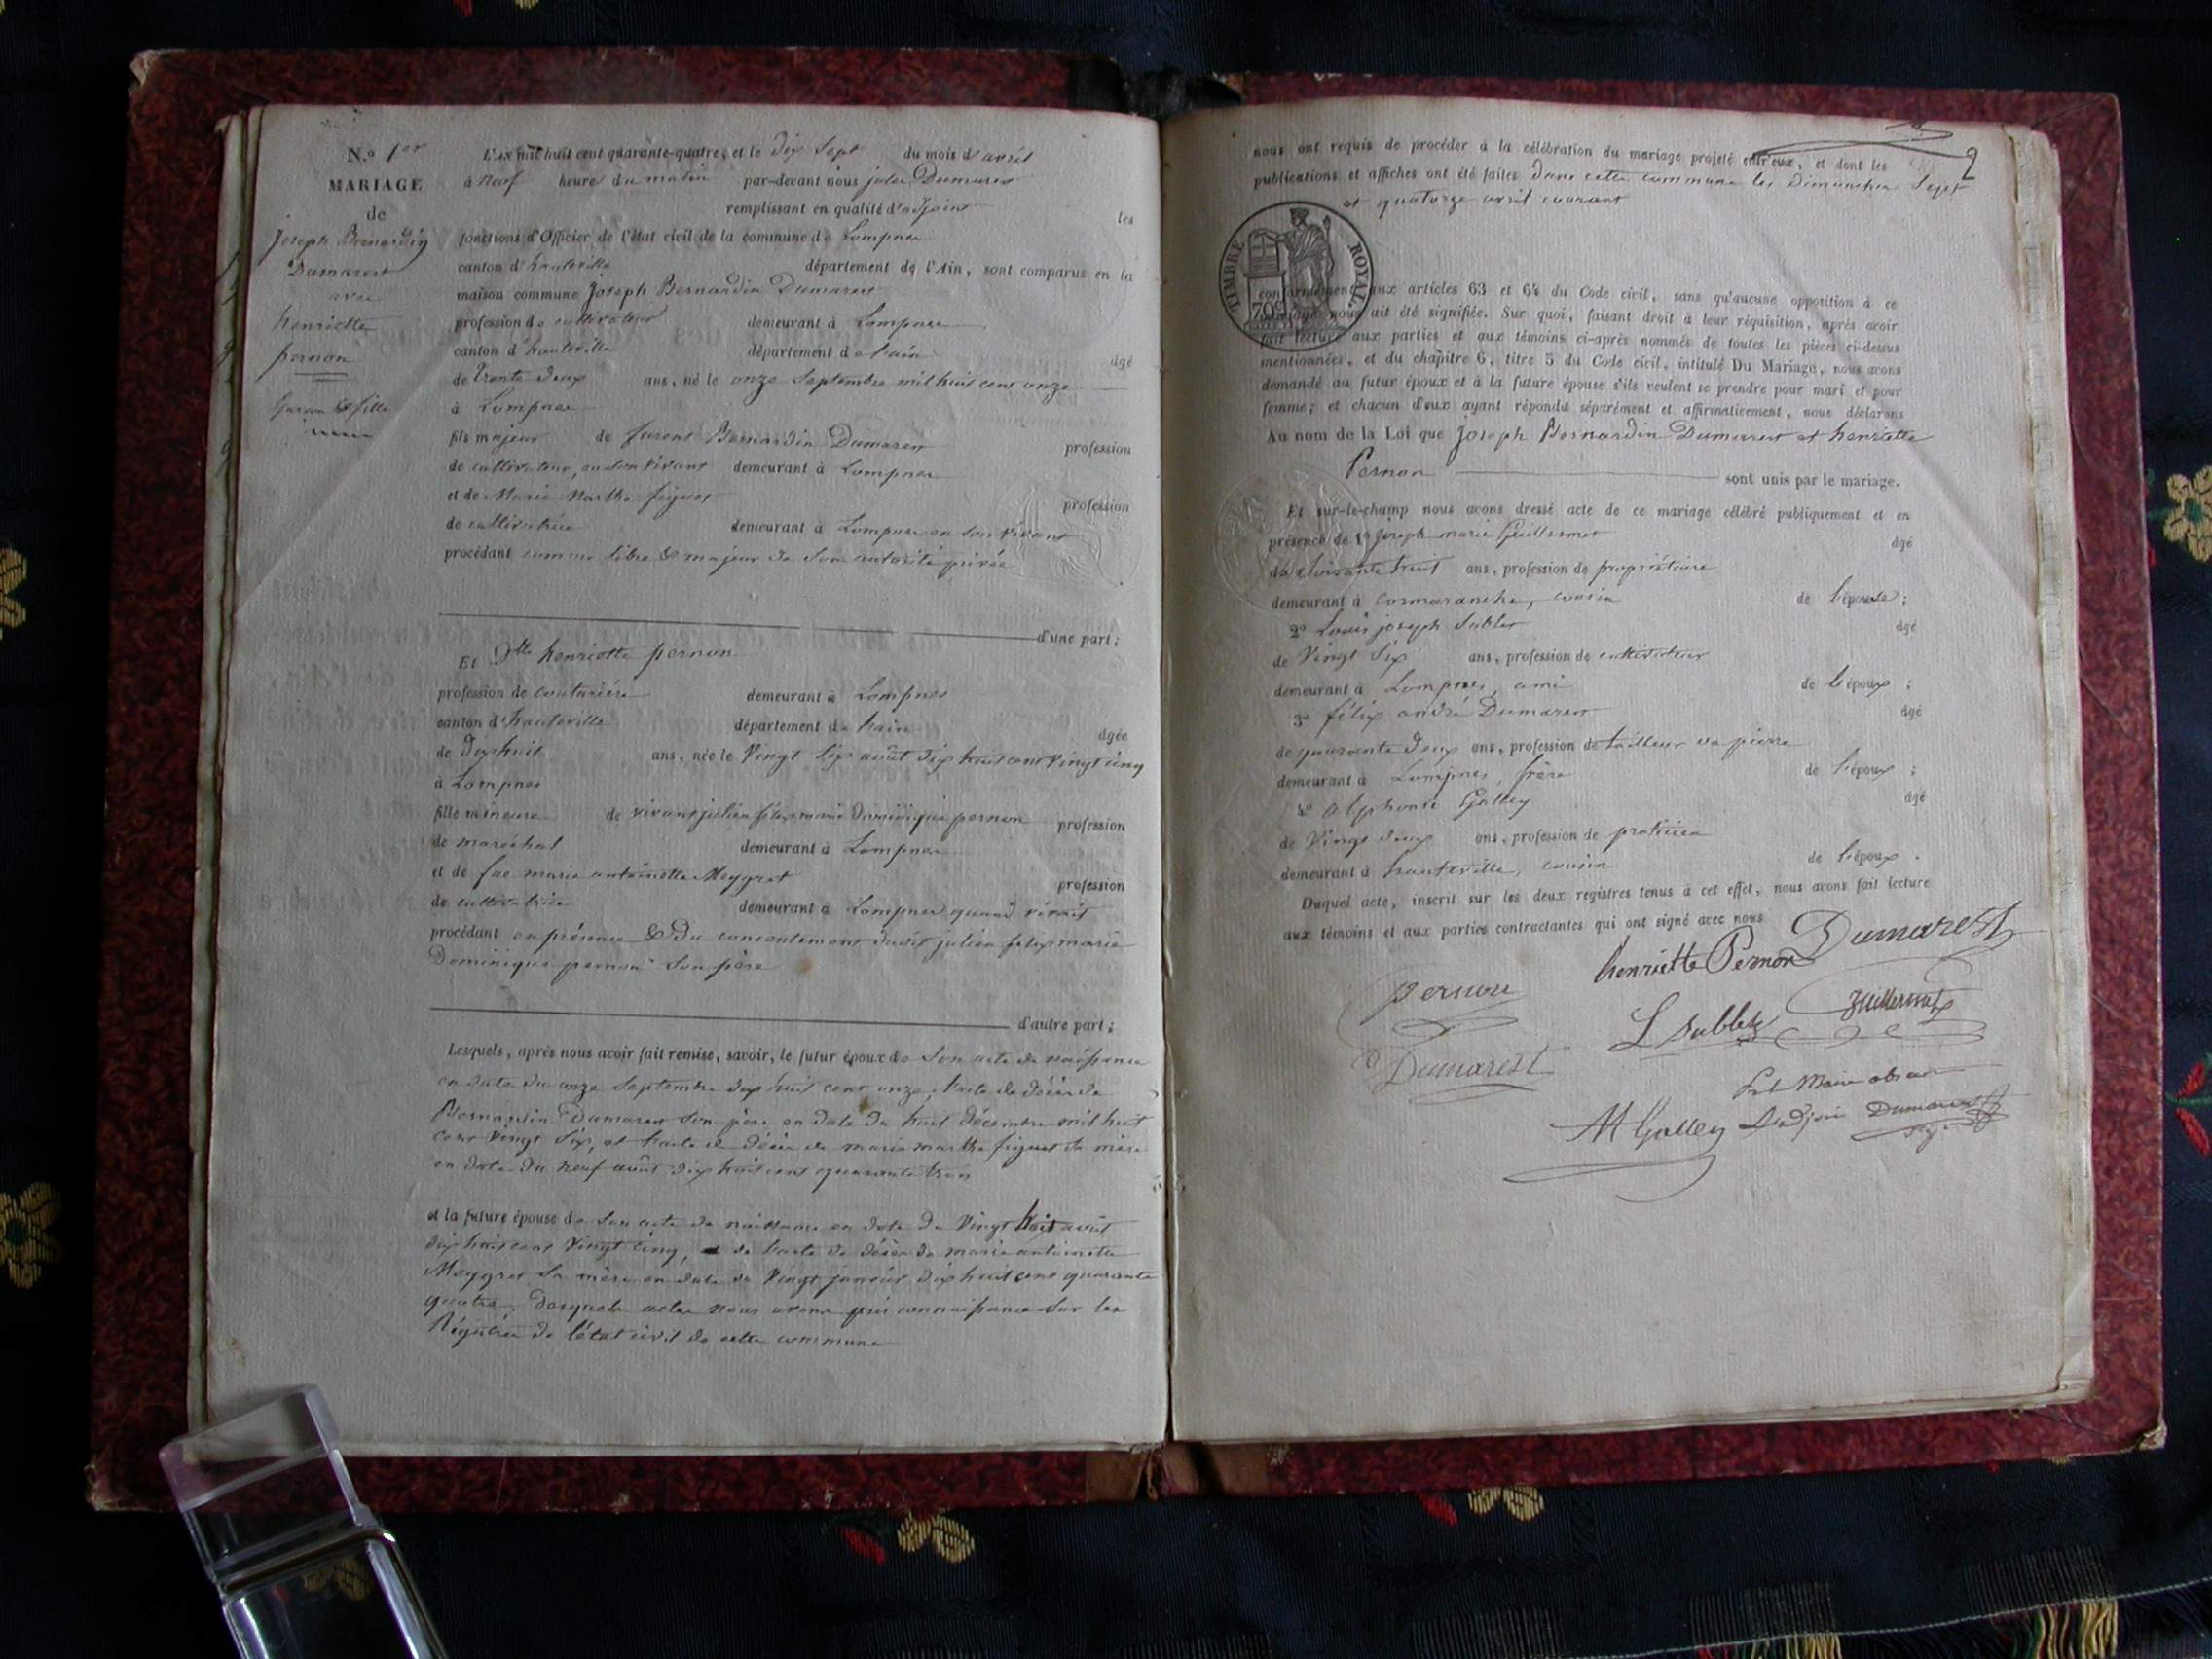 N.o 1er
MARIAGE
de
Joseph Bernardin
Dumarest
avec
henriette
pernon
Garçon & fille
L'AN mil huit cent quarante-quatre, et le dix sept du mois d'avril
à neuf heures du matin par-devant nous jules Dumarest
remplissant en qualité d'adjoint les
fonctions d'Officier de l'état civil de la commune de Lompnes
canton d'hauteville département de l'Ain, sont comparus en la
maison commune Joseph Bernardin Dumarest
profession de cultivateur demeurant à Lompnes
canton d'hauteville département de l'ain âgé
de trente deux ans, né le onze Septembre mil huit cent onze
à Lompnes
fils majeur de furent Bernardin Dumarest profession
de cultivateur, en son vivant demeurant à Lompnes
et de Marie Marthe figuet profession
de cultivatrice demeurant à Lompnes en son vivant
procédant comme libre & majeur de son autorité privée
d'une part;
Et Dlle henriette pernon
profession de couturière demeurant à Lompnes
canton d'hauteville département de l'ain âgée
de dix huit ans, née le vingt six août dix huit cent vingt cinq
à Lompnes
fille mineure de vivant julien félix marie dominique pernon profession
de maréchal demeurant à Lompnes
et de fue marie antoinette Meygret profession
de cultivatrice demeurant à Lompnes quand vivait
procédant en présence & du consentement dudit julien felix marie
Dominique pernon son père
d'autre part;
Lesquels, après nous avoir fait remise, savoir, le futur époux de son acte de naissance
en date du onze Septembre dix huit cent onze, l'acte de décès de
Bernardin Dumarest son père en date du huit décembre mil huit
cent vingt six, et l'acte de décès de marie marthe figuet sa mère
en date du neuf août dix huit cent quarante trois
et la future épouse de son acte de naissance en date du vingt août
dix huit cent vingt cinq, de l'acte de décès de marie antoinette
Meygret sa mère en date du vingt janvier dix huit cent quarante
quatre, desquels actes nous avons pris connaissance sur les
Régistres de l'état civil de cette commune
2
nous ont requis de procéder à la célébration du mariage projeté entr'eux, et dont les
publications et affiches ont été faites dans cette commune les dimanches sept
et quatorze avril courant
TIMBRE ROYAL
70c
conformément aux articles 63 et 64 du Code civil, sans qu'aucune opposition à ce
mariage nous ait été signifiée. Sur quoi, faisant droit à leur réquisition, après avoir
fait lecture aux parties et aux témoins ci-après nommés de toutes les pièces ci-dessus
mentionnées, et du chapitre 6, titre 5 du Code civil, intitulé Du Mariage, nous avons
demandé au futur époux et à la future épouse s'ils veulent se prendre pour mari et pour
femme; et chacun d'eux ayant répondu séparément et affirmativement, nous déclarons
Au nom de la Loi que Joseph Bernardin Dumarest et henriette
Pernon sont unis par le mariage.
Et sur-le-champ nous avons dressé acte de ce mariage célébré publiquement et en
présence de 1o Joseph marie Guillermet âgé
de soixante huit ans, profession de propriétaire
demeurant à Cormaranche, cousin de l'épouse;
2o Louis joseph Sublet âgé
de vingt six ans, profession de cultivateur
demeurant à Lompnes, ami de l'époux;
3o félix andré Dumarest âgé
de quarante deux ans, profession de tailleur de pierre
demeurant à Lompnes, frère de l'époux;
4o alphonse Galley âgé
de vingt deux ans, profession de praticien
demeurant à hauteville, cousin de l'époux.
Duquel acte, inscrit sur les deux registres tenus à cet effet, nous avons fait lecture
aux témoins et aux parties contractantes qui ont signé avec nous
Dumarest
henriette Pernon
pernon
L Sublet
Guillermet
Dumarest
Maire absent
A Galley L'adjoint Dumarest